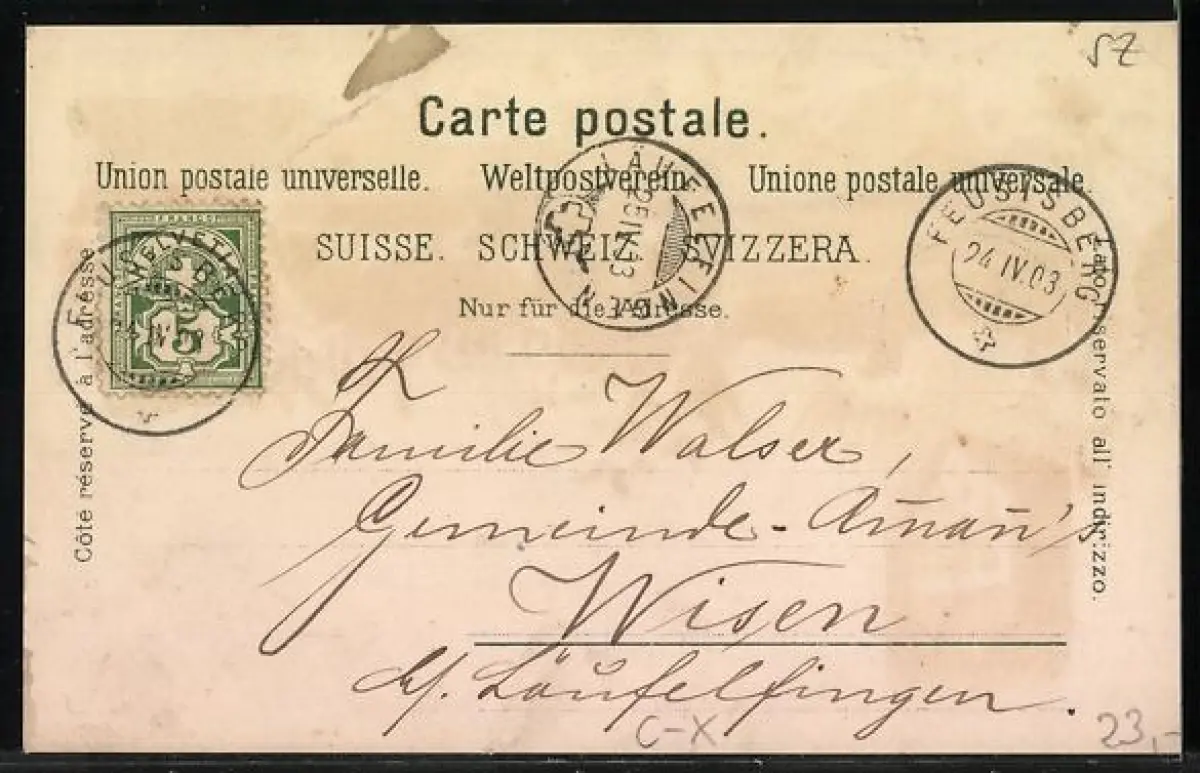 SZ
Carte postale.
Union postale universelle. Weltpostverein. Unione postale universale.
SUISSE. SCHWEIZ. SVIZZERA.
Nur für die Adresse.
Côté réservé à l'adresse
Lato riservato all' indirizzo.
FRANCO
HELVETIA
5
FEUSISBERG
24 IV. 03
LÄUFELFINGEN
25 IV 03
FEUSISBERG
24 IV. 03
Familie Walser,
Gemeinde-Aman̄'s
Wisen
b/. Läufelfingen.
C-X
23,-